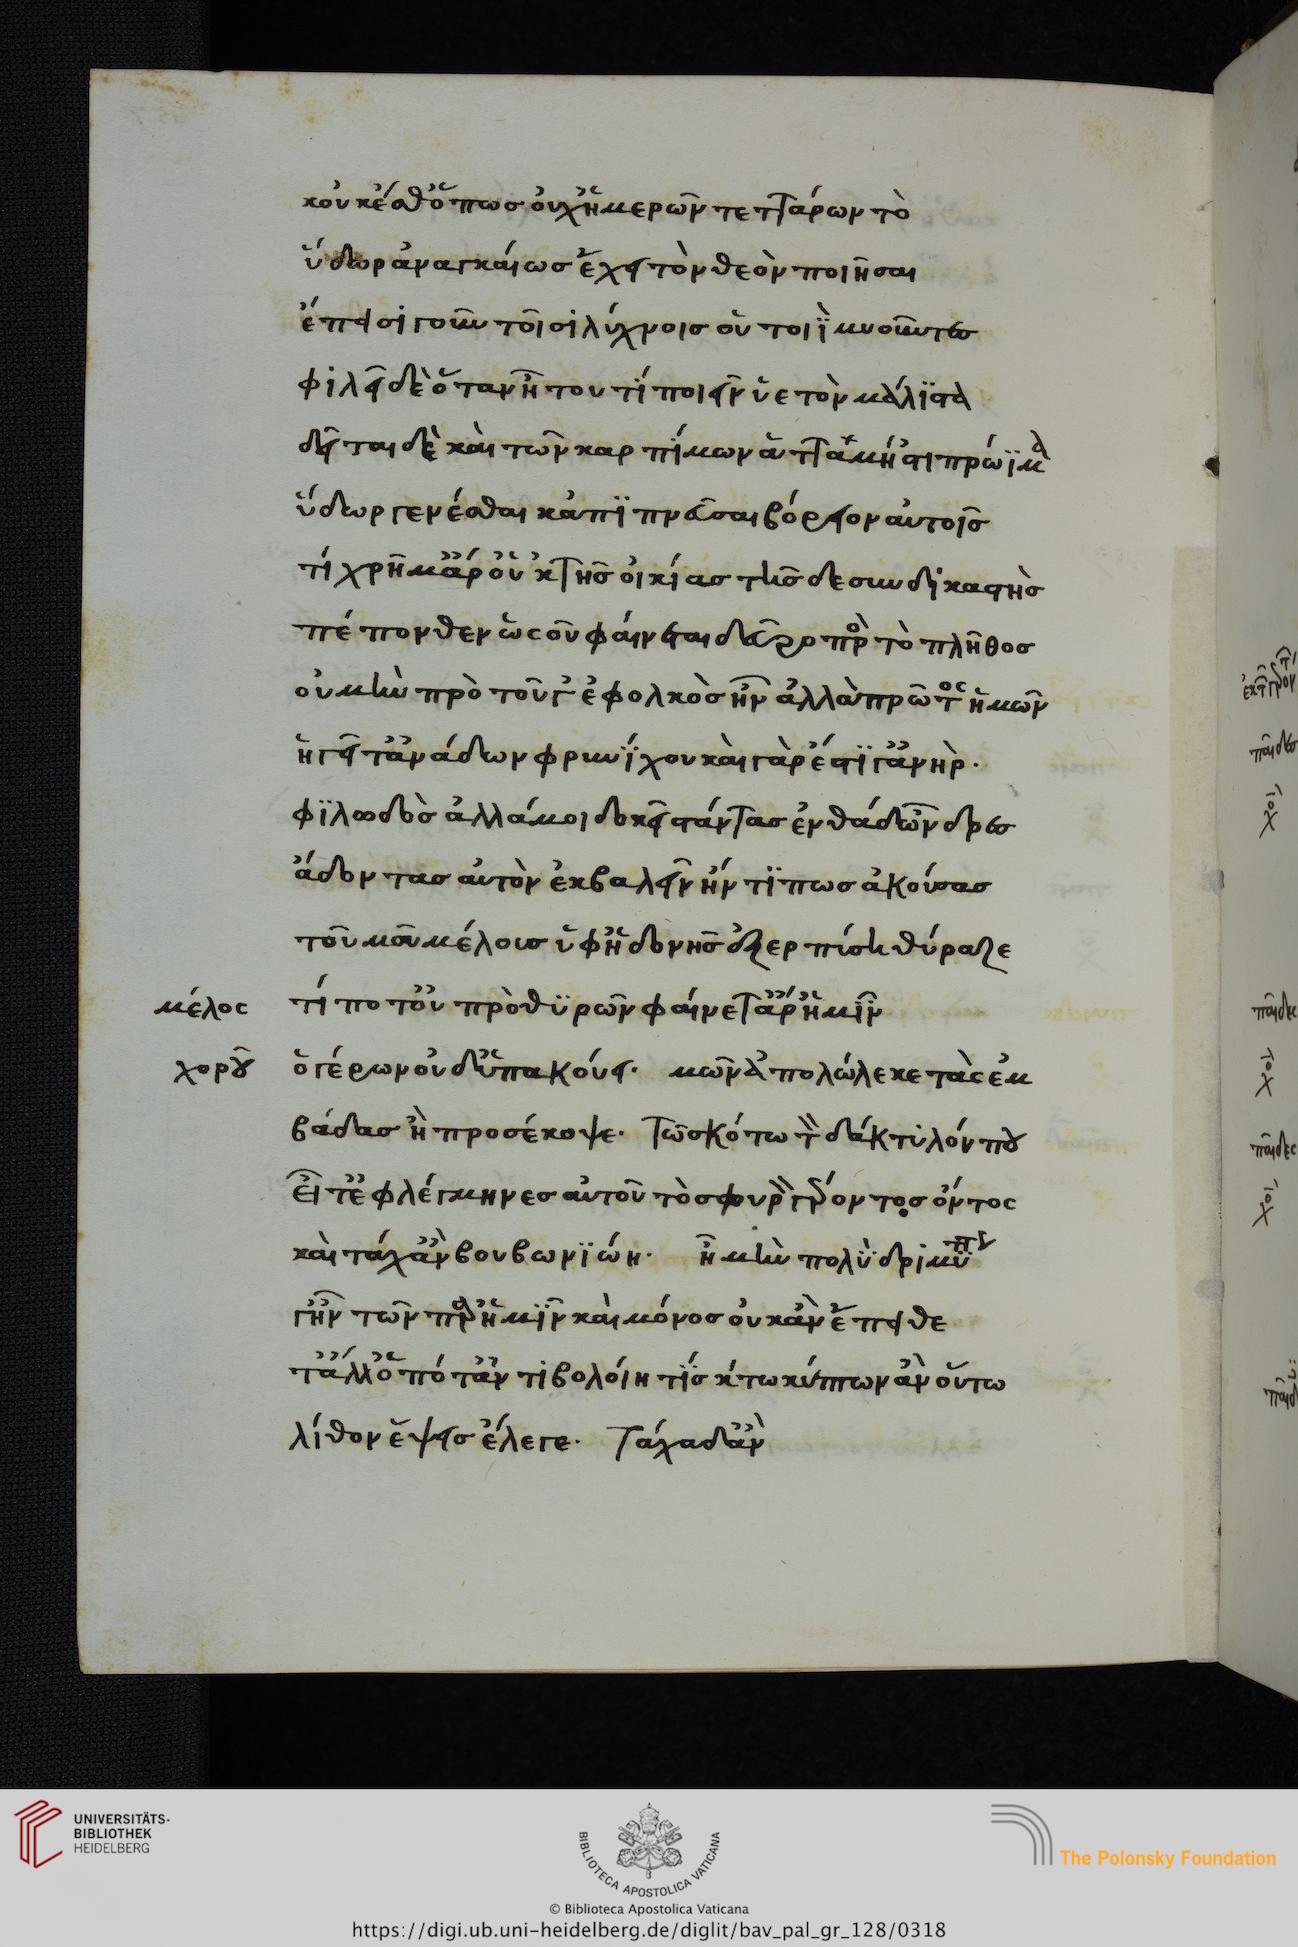 κοὐκ ἔσθ' ὅπως οὐχ ἡμερῶν τεττάρων τὸ
ὕδωρ ἀναγκαίως ἔχει τὸν θεὸν ποιῆσαι
ἔπεισι γοῦν τοῖσι λύχνοις οὑτοιὶ μυοῦντες
φιλεῖ δὲ ὅταν ἦ τουτὶ ποιεῖν ὑετὸν μάλιστα
δεῖται δὲ καὶ τῶν καρπίμων ἅττα μή 'στι πρώϊμα
ὕδωρ γενέσθαι κἀπιπνεῦσαι βόρειον αὐτοῖς
τί χρῆμ' ἄρ' οὐκ τῆς οἰκίας τῆσδε συνδικαστὴς
πέπονθεν ὡς οὐ φαίνεται δεῦρο πρὸς τὸ πλῆθος
οὐ μὴν πρὸ τοῦ γ' ἐφολκὸς ἦν ἀλλὰ πρῶτος ἡμῶν
ἡγεῖτ' ἂν ἄδων φρυνίχου καὶ γάρ ἐστιν ἀνὴρ.
φιλωδὸς ἀλλά μοι δοκεῖ στάντας ἐνθάδ' ὦνδρες
ἄδοντας αὐτὸν ἐκβαλεῖν ἤν τί πως ἀκούσας
τοῦ μοῦ μέλους ὑφ' ἡδονῆς ἐξερπίση θύραζε
μέλος
τί ποτ' οὐ πρὸ θυρῶν φαίνετ' ἄρ' ἡμῖν
χοροῦ
ὁ γέρων οὐδ' ὑπακούει. μῶν ἀπολώλεκε τὰς ἐμ
βάδας ἢ προσέκοψε. τῶ σκότω τὸν δάκτυλόν που
εἶτ' ἐφλέγμηνεν αὐτοῦ τὸ σφυρὸν γέροντος ὄντος
καὶ τάχ' ἂν βουβωνιώη. ἦ μὴν πολὺ δριμύ
γ' ἦν τῶν παρ' ἡμῖν καὶ μόνος οὐκ ἂν ἔπειθε
τἀλλ' ὁπότ' ἀντιβολοίη τίς κάτω κύπτων ἂν οὕτω
λίθον ἕψεις ἔλεγε. τάχα δ' ἂν
παῖδες
χοι
παῖδες
χοι
παῖδες
χοι
UNIVERSITÄTS-
BIBLIOTHEK
HEIDELBERG
BIBLIOTECA APOSTOLICA VATICANA
The Polonsky Foundation
© Biblioteca Apostolica Vaticana
https://digi.ub.uni-heidelberg.de/diglit/bav_pal_gr_128/0318